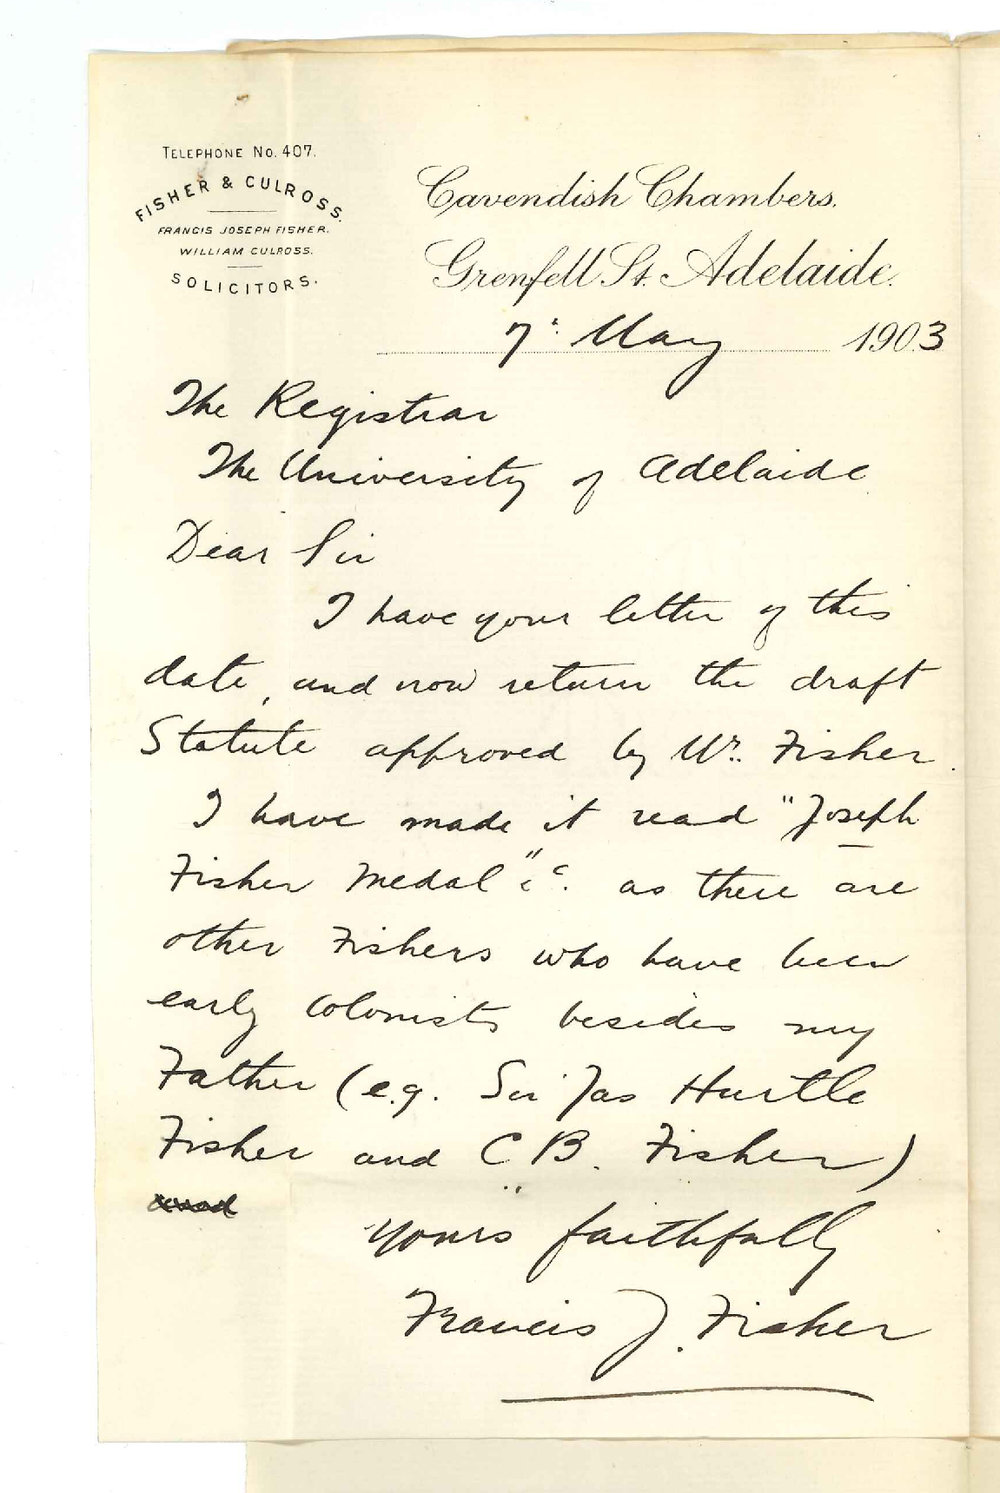 TELEPHONE NO. 407.
FISHER & CULROSS.
FRANCIS JOSEPH FISHER.
WILLIAM CULROSS.
SOLICITORS.
Cavendish Chambers.
Grenfell St. Adelaide.
7: May 1903
The Registrar
The University of Adelaide
Dear Sir
I have your letter of this
date, and now return the draft
Statute approved by Mr. Fisher.
I have made it read "Joseph
Fisher Medal" &c. as there are
other Fishers who have been
early colonists besides my
Father (e.g. Sir Jas Hurtle
Fisher and C B. Fisher)
Yours faithfully
Francis J. Fisher